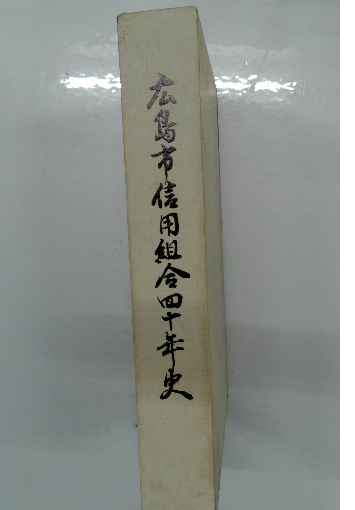 広島市信用組合四十年史